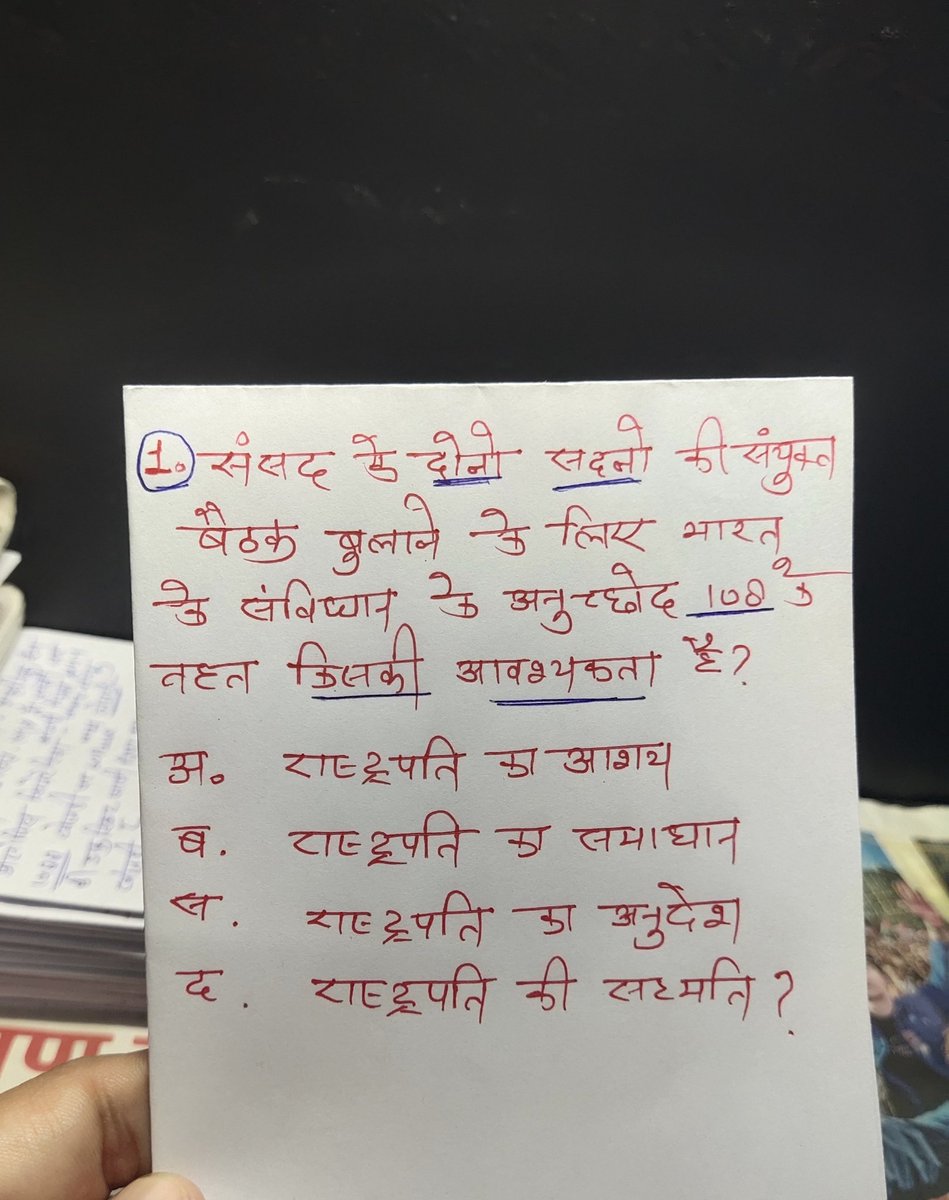 1. संसद के दोनो सदनो की संयुक्त
बैठक बुलाने के लिए भारत
के संविधान के अनुच्छेद 108 के
तहत किसकी आवश्यकता है?
अ. राष्ट्रपति का आशय
ब. राष्ट्रपति का समाधान
स. राष्ट्रपति का अनुदेश
द. राष्ट्रपति की सहमति?